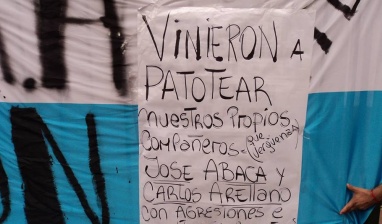 VINIERON A
PATOTEAR
NUESTROS PROPIOS
COMPAÑEROS- QUE
VERGUENZA!
JOSE ABACA y
CARLOS ARELLANO
CON AGRESIONES E